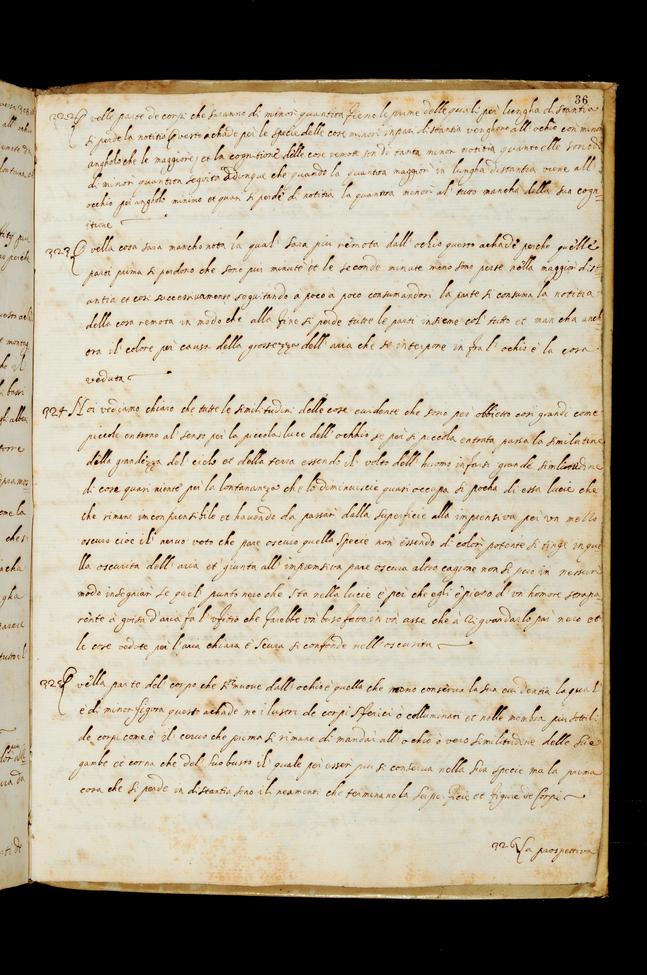 36
322 Quelle parte de corpi che saranno di minori quantita fieno le prime delle quali per lungha distantia
si perde la notitia Questo achade per la specie delle cose minori in pari distantia venghono all'ochio con minor
angholo che le maggiori, et la cognitione delle cose remote son di tanta minor notitia quanto elle son
di minori quantita seguita adunque che quando la quantita maggior in lungha distantia viene all
ochio per angholo minimo et quasi si perde di notitia la quantita minori al tutto mancha della sua cogni=
tione
323 Quella cosa sara mancho nota la qual sara piu remota dall'ochio questo achade perche quelle
parti prima si perdono che sono piu minute et le seconde minute meno sono perse nella maggior dist
antia et cosi successivamente seguitando a poco à poco consumandosi la parte si consuma la notitia
della cosa remota in modo che alla fine si perde tutte le parti insieme col tutto et mancha anch
ora il colore per causa della grossezza dell'aria che si interpone in fra l'ochio è la cosa
veduta
324 Noi vediamo chiaro che tutte le similitudini delle cose evidente che sono per obbietto cosi grandi come
piccole entrono al senso per la piccola luce dell'ochio se per si piccola entrata passa la similitudine
della grandezza del cielo et della terra essendo il volto dell'huomo infra si grande similitudine
di cose quasi niente per la lontananza che lo diminuiscie quasi occupa si pocha di essa lucie che
che rimane incomprensibile et havendo da passari dalla superficie alla imprensiva per un mezzo
oscuro cioè il nervo voto che pare oscuro quella specie non essendo di colori potente si tinge in que
lla oscurita dell'aria et giunta all'imprensiva pare oscura altra cagione non si puo in nessun
modo insegniar se quel punto nero che sta nella lucie è per che egli è pieno d'un homore traspa=
rente à guisa d'aria fa l'ofitio che farebbe un buso fatto in un'asse che à riguardarlo par nero et
le cose vedute per l'aria chiara è scura si confonde nell'oscurita
325 Quella parte del corpo che si rimuove dall'ochio è quella che meno conserva la sua evidentia la qual
è di minor figura questo achade ne i lustri de corpi sferici ò colluminati et nelle membra piu sottili
de corpi come è il cervo che prima si rimane di mandar all'ochio ò vero similitudine delle sue
gambe et corna che del suo busto il quale per esser piu si conserva nella sua specie ma la prima
cosa che si perde in distantia sono i lineamenti che terminano la superficie et figure de Corpi
326 La prospettiva